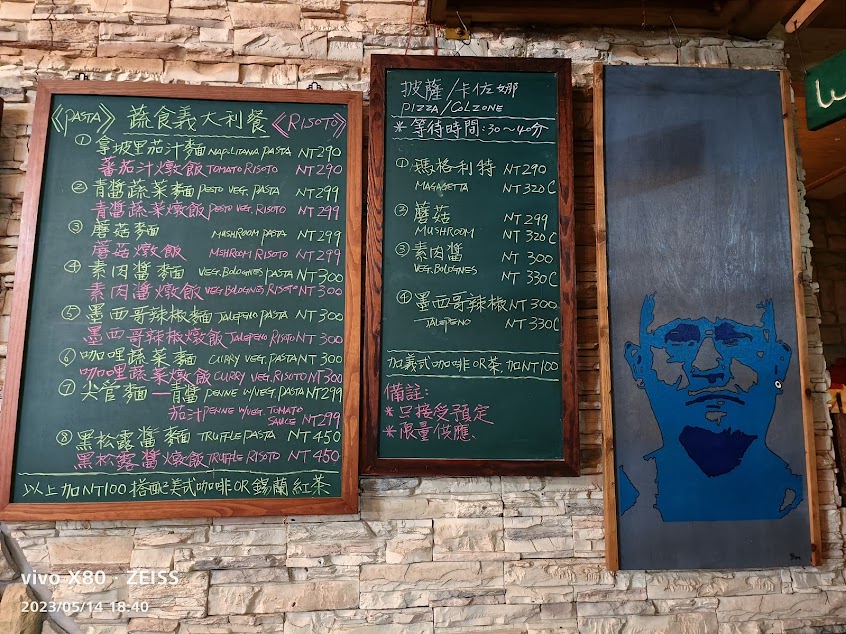 《PASTA》 蔬食義大利餐 《RISOTO》
① 拿坡里茄汁麵 NAPOLITANA PASTA NT290
蕃茄汁燉飯 TOMATO RISOTO NT290
② 青醬蔬菜麵 PESTO VEG. PASTA NT299
青醬蔬菜燉飯 PESTO VEG. RISOTO NT299
③ 蘑菇麵 MUSHROOM PASTA NT299
蘑菇燉飯 MSHROOM RISOTO NT299
④ 素肉醬麵 VEG. BOLOGNES PASTA NT300
素肉醬燉飯 VEG. BOLOGNES RISOTO NT300
⑤ 墨西哥辣椒麵 JALEPENO PASTA NT300
墨西哥辣椒燉飯 JALEPENO RISOTO NT300
⑥ 咖哩蔬菜麵 CURRY VEG. PASTA NT300
咖哩蔬菜燉飯 CURRY VEG. RISOTO NT300
⑦ 尖管麵—青醬 PENNE W/VEG PASTA NT299
茄汁 PENNE W/VEG. TOMATO
SAUCE NT299
⑧ 黑松露醬麵 TRUFFLE PASTA NT450
黑松露醬燉飯 TRUFFLE RISOTO NT450
以上加NT100搭配美式咖啡OR錫蘭紅茶
披薩/卡佐娜
PIZZA/COLZONE
* 等待時間:30~40分
① 瑪格利特 NT290
MAGAGETTA NT320C
② 蘑菇 NT299
MUSHROOM NT320C
③ 素肉醬 NT 300
VEG. BOLOGNES NT 330C
④ 墨西哥辣椒 NT300
JALEPENO NT330C
加義式咖啡OR茶加NT100
備註:
*只接受預定
*限量供應、
vivo X80 · ZEISS
2023/05/14 18:40